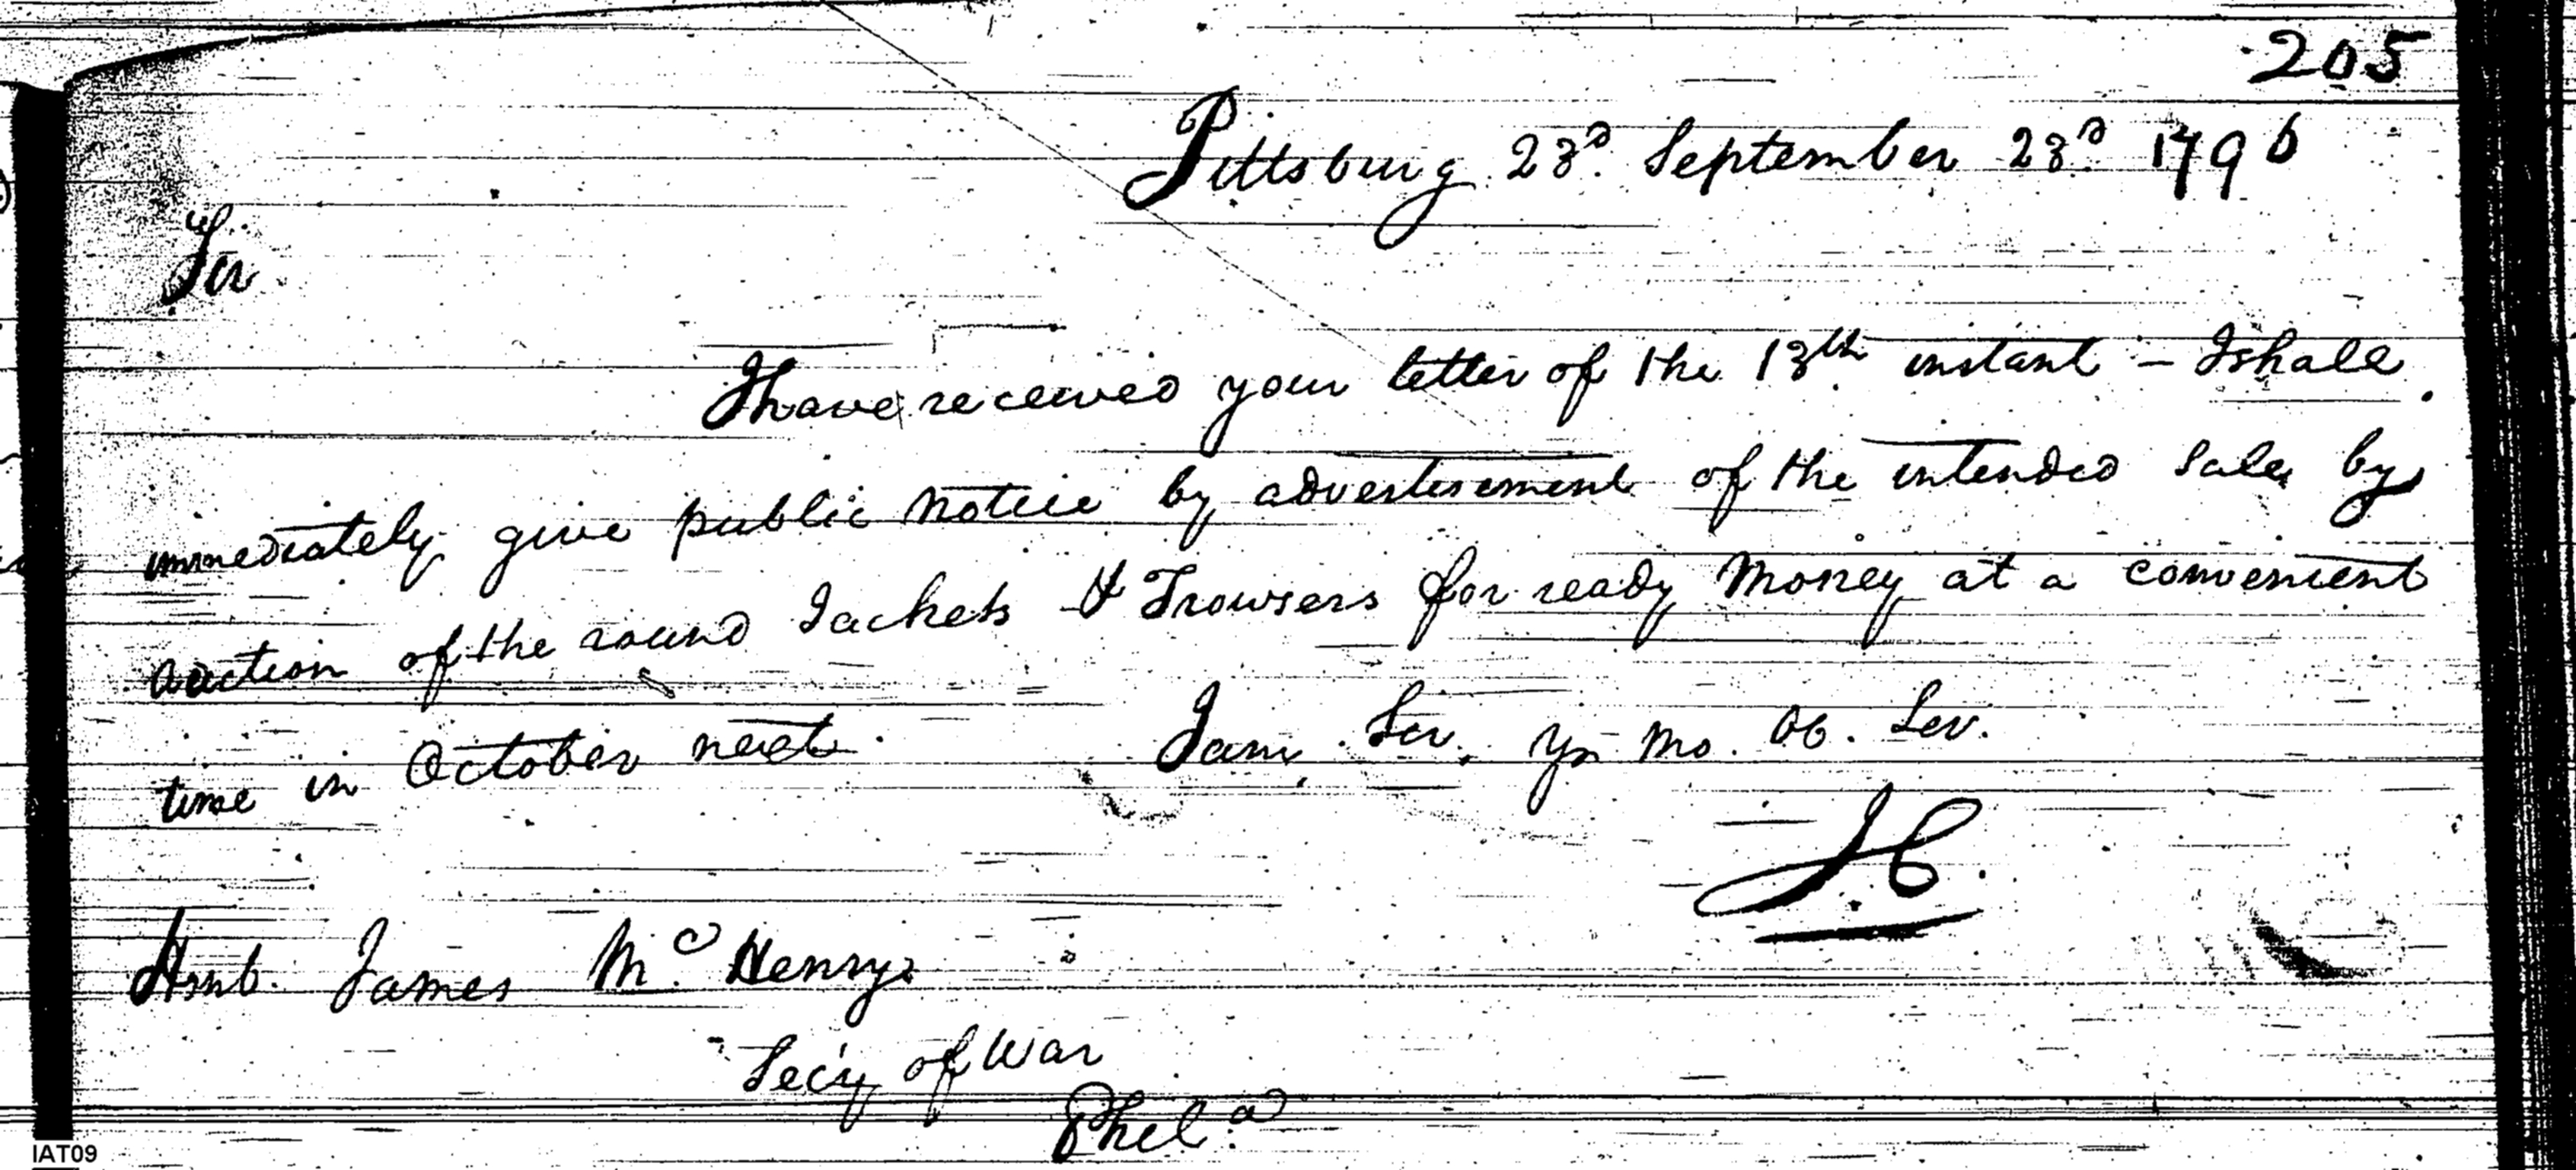 205
Pittsburg 23d. September 23d. 1796
Sir
I have received your letter of the 13th instant – I shall
immediately give public notice by advertisement of the intended Sale by
auction of the round Jackets & Trowsers for ready Money at a convenient
time in October next.
I am, Sir, Yr mo. Ob. Ser.
I.C.
Honb. James Mc. Henry
Sec'y of War
Phela.
IAT09